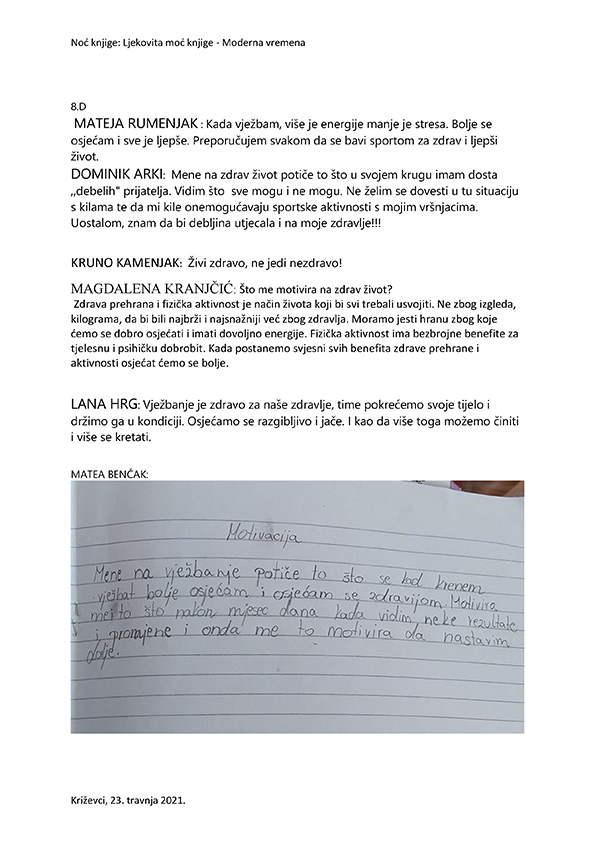 Noć knjige: Ljekovita moć knjige - Moderna vremena
8.D
MATEJA RUMENJAK : Kada vježbam, više je energije manje je stresa. Bolje se
osjećam i sve je ljepše. Preporučujem svakom da se bavi sportom za zdrav i ljepši
život.
DOMINIK ARKI: Mene na zdrav život potiče to što u svojem krugu imam dosta
,,debelih" prijatelja. Vidim što sve mogu i ne mogu. Ne želim se dovesti u tu situaciju
s kilama te da mi kile onemogućavaju sportske aktivnosti s mojim vršnjacima.
Uostalom, znam da bi debljina utjecala i na moje zdravlje!!!
KRUNO KAMENJAK: Živi zdravo, ne jedi nezdravo!
MAGDALENA KRANJČIĆ: Što me motivira na zdrav život?
Zdrava prehrana i fizička aktivnost je način života koji bi svi trebali usvojiti. Ne zbog izgleda,
kilograma, da bi bili najbrži i najsnažniji već zbog zdravlja. Moramo jesti hranu zbog koje
ćemo se dobro osjećati i imati dovoljno energije. Fizička aktivnost ima bezbrojne benefite za
tjelesnu i psihičku dobrobit. Kada postanemo svjesni svih benefita zdrave prehrane i
aktivnosti osjećat ćemo se bolje.
LANA HRG: Vježbanje je zdravo za naše zdravlje, time pokrećemo svoje tijelo i
držimo ga u kondiciji. Osjećamo se razgibljivo i jače. I kao da više toga možemo činiti
i više se kretati.
MATEA BENČAK:
Motivacija
Mene na vježbanje potiče to što se kad krenem
vježbat bolje osjećam i osjećam se zdravijom. Motivira
me i to što nakon mjesec dana kada vidim neke rezultate
i promjene i onda me to motivira da nastavim
dalje.
Križevci, 23. travnja 2021.